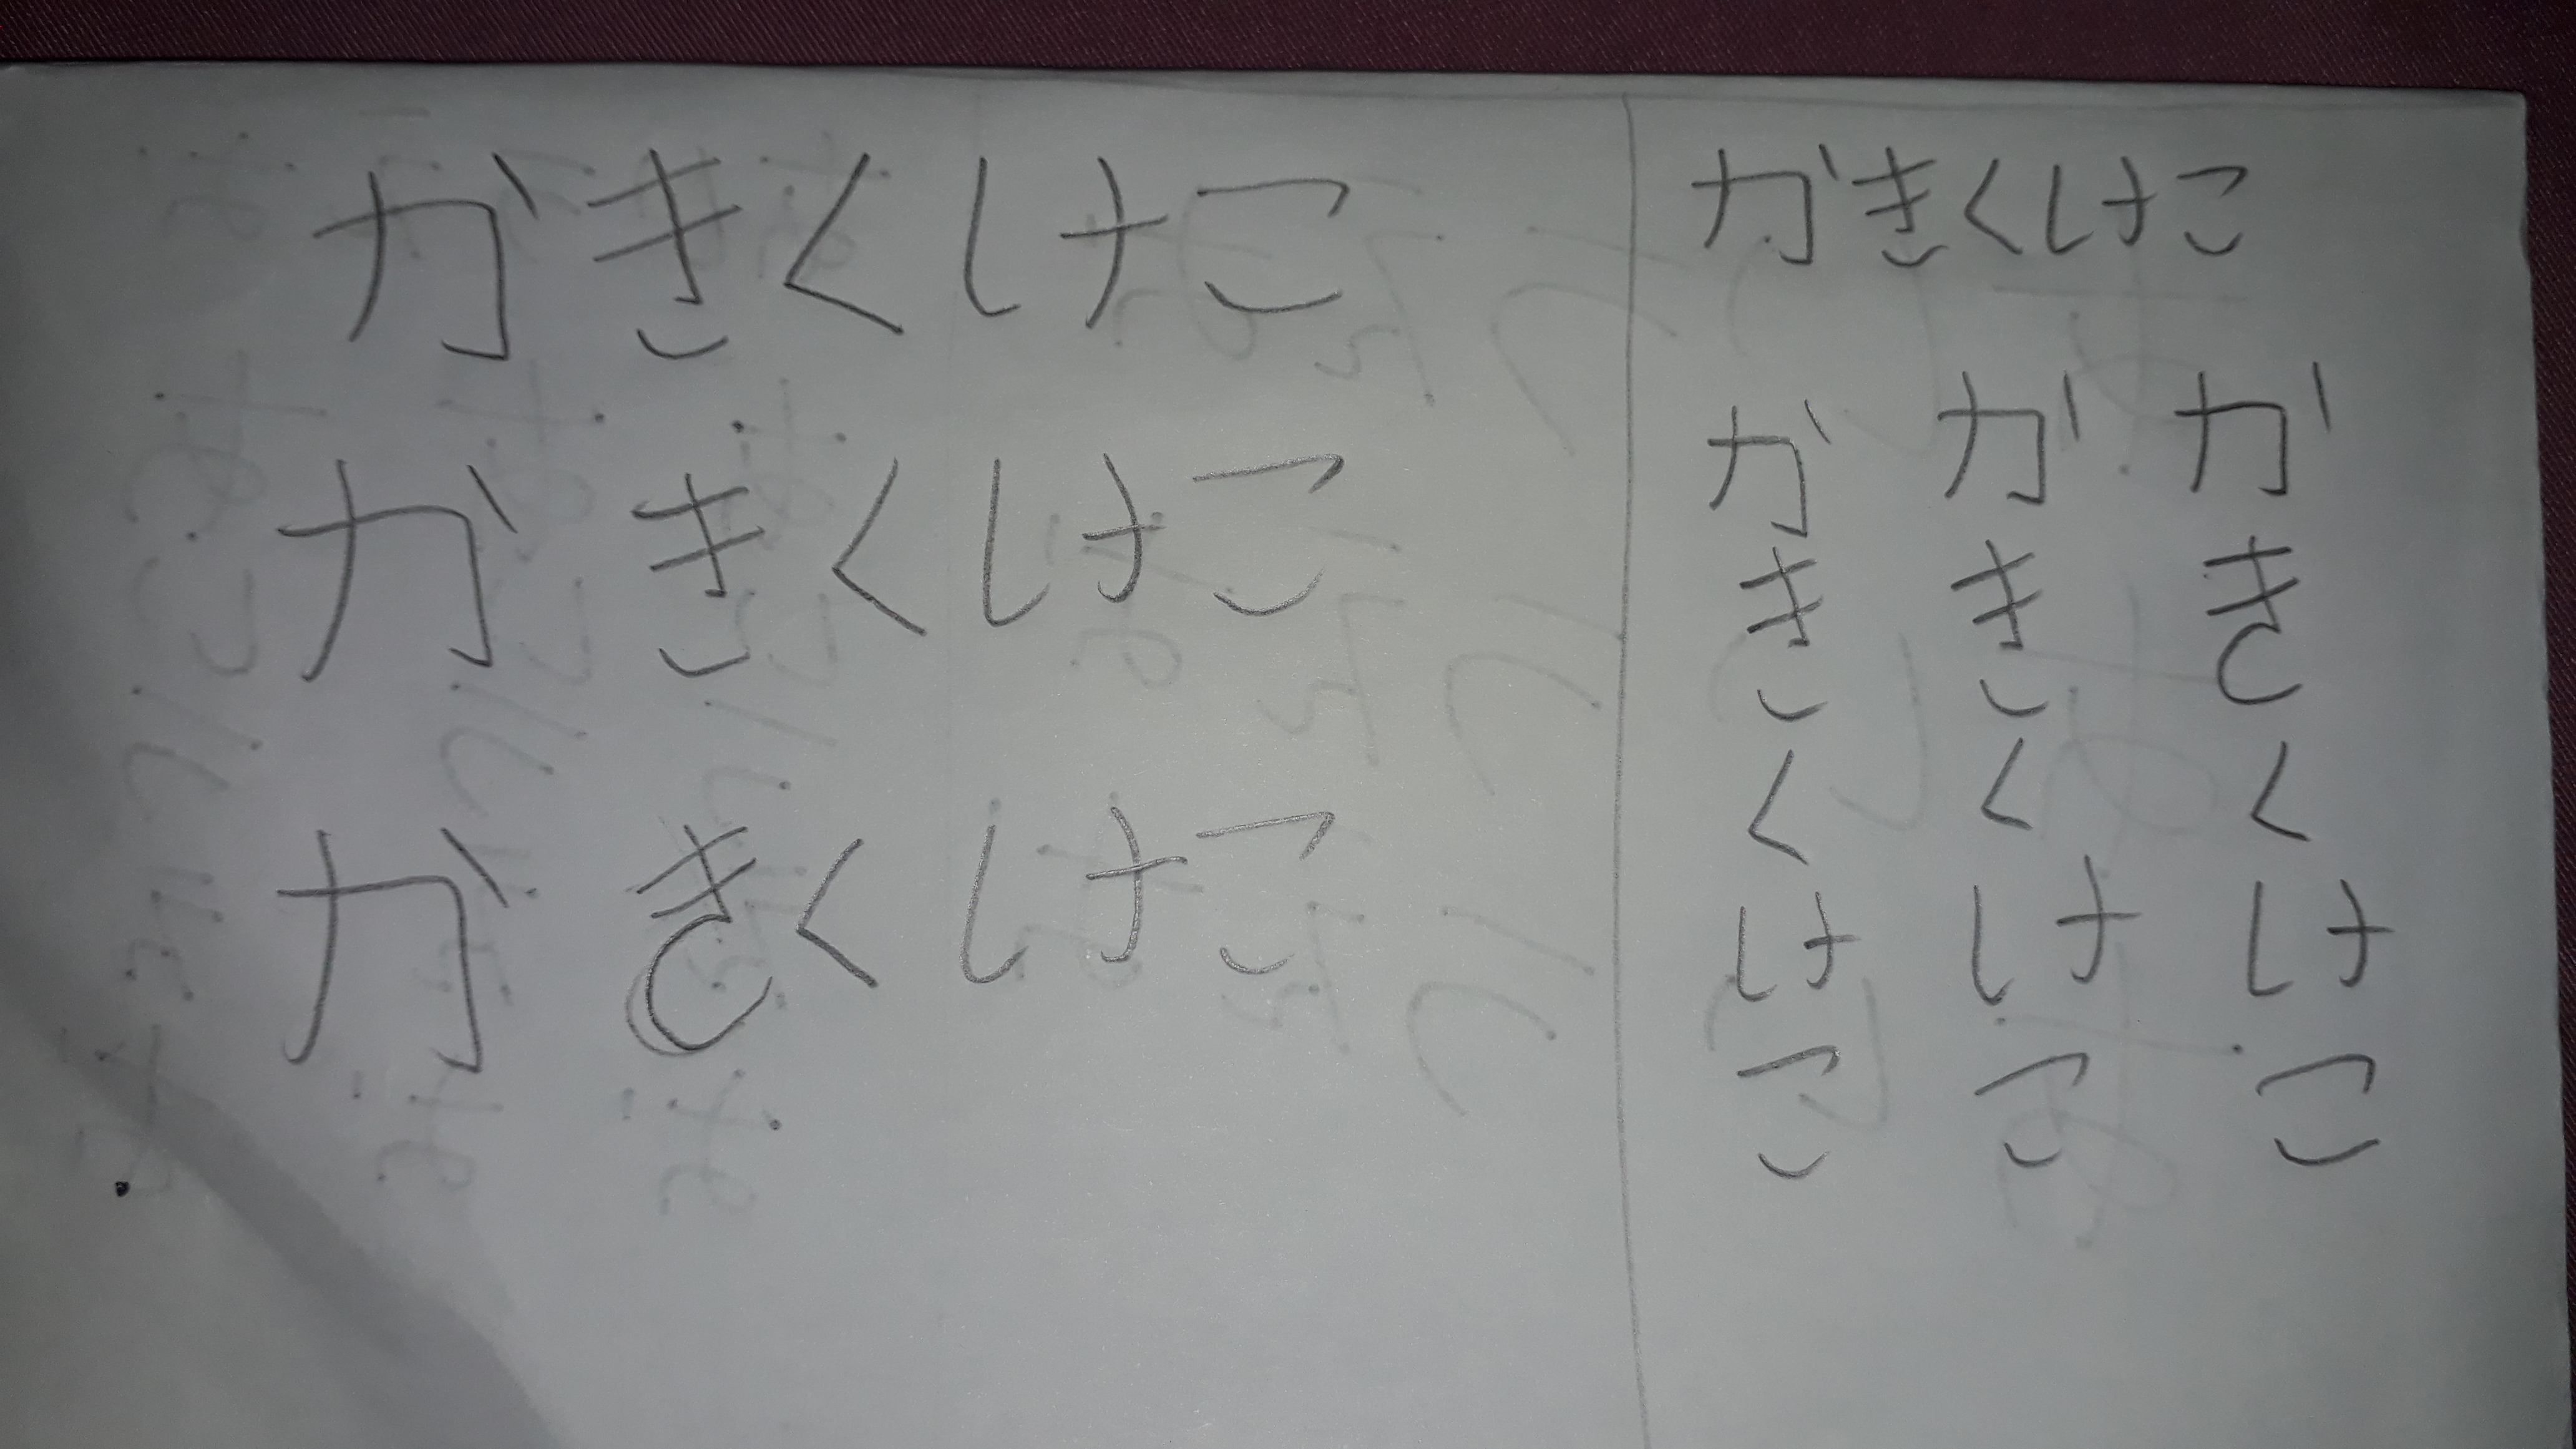 かきくけこ
かきくけこ
かきくけこ
かきくけこ
かきくけこ
かきくけこ
かきくけこ